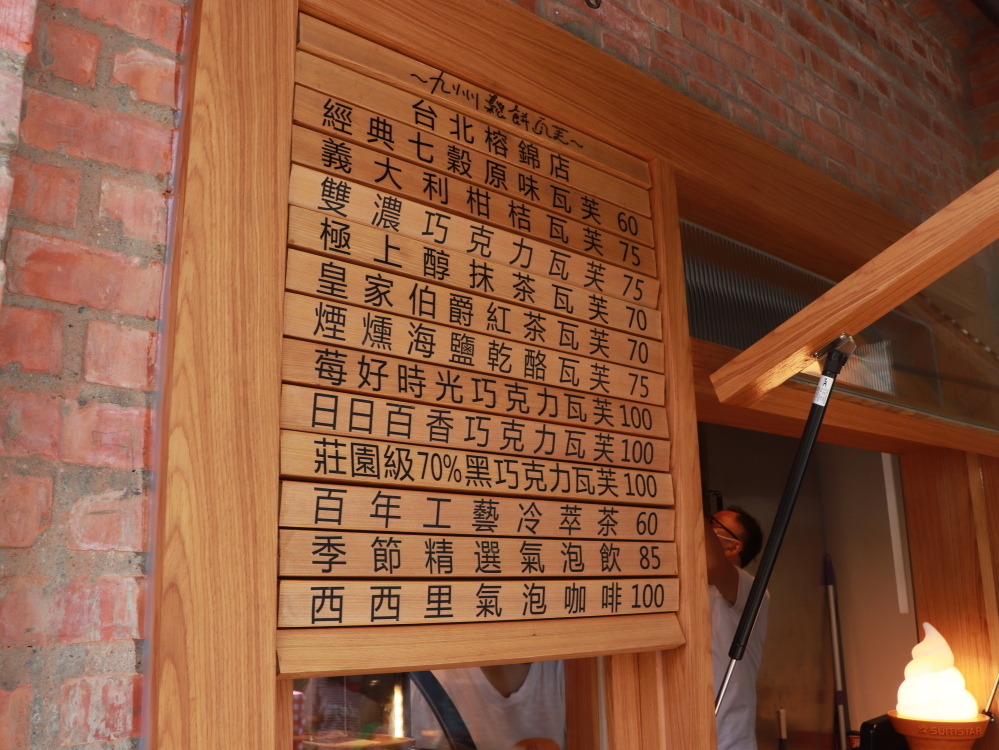 ~九州鬆餅瓦芙~
台北榕錦店
經典七穀原味瓦芙 60
義大利柑桔瓦芙 75
雙濃巧克力瓦芙 75
極上醇抹茶瓦芙 70
皇家伯爵紅茶瓦芙 70
煙燻海鹽乾酪瓦芙 75
莓好時光巧克力瓦芙 100
日日百香巧克力瓦芙 100
莊園級70%黑巧克力瓦芙 100
百年工藝冷萃茶 60
季節精選氣泡飲 85
西西里氣泡咖啡 100
SUMSTAR